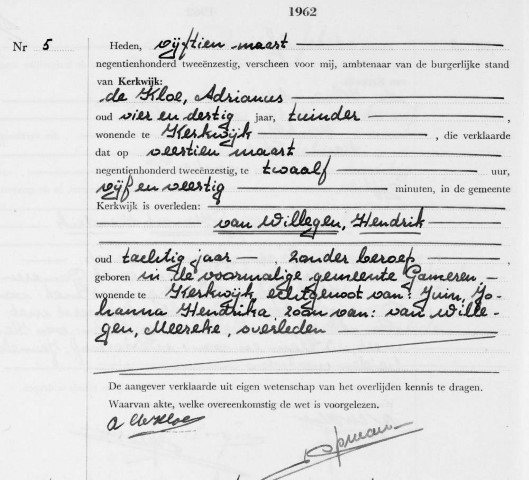 1962
Nr 5 Heden, vijftien maart
negentienhonderd tweeënzestig, verscheen voor mij, ambtenaar van de burgerlijke stand
van Kerkwijk:
de Kloe, Adrianus
oud vier en dertig jaar, tuinder
wonende te Kerkwijk , die verklaarde
dat op veertien maart
negentienhonderd tweeënzestig, te twaalf uur,
vijf en veertig minuten, in de gemeente
Kerkwijk is overleden:
van Willegen, Hendrik
oud tachtig jaar , zonder beroep
geboren in de voormalige gemeente Gameren,
wonende te Kerkwijk echtgenoot van: Juin, Jo-
hanna Hendrika, zoon van: van Wille-
gen, Meereke, overleden
De aangever verklaarde uit eigen wetenschap van het overlijden kennis te dragen.
Waarvan akte, welke overeenkomstig de wet is voorgelezen.
A de Kloe